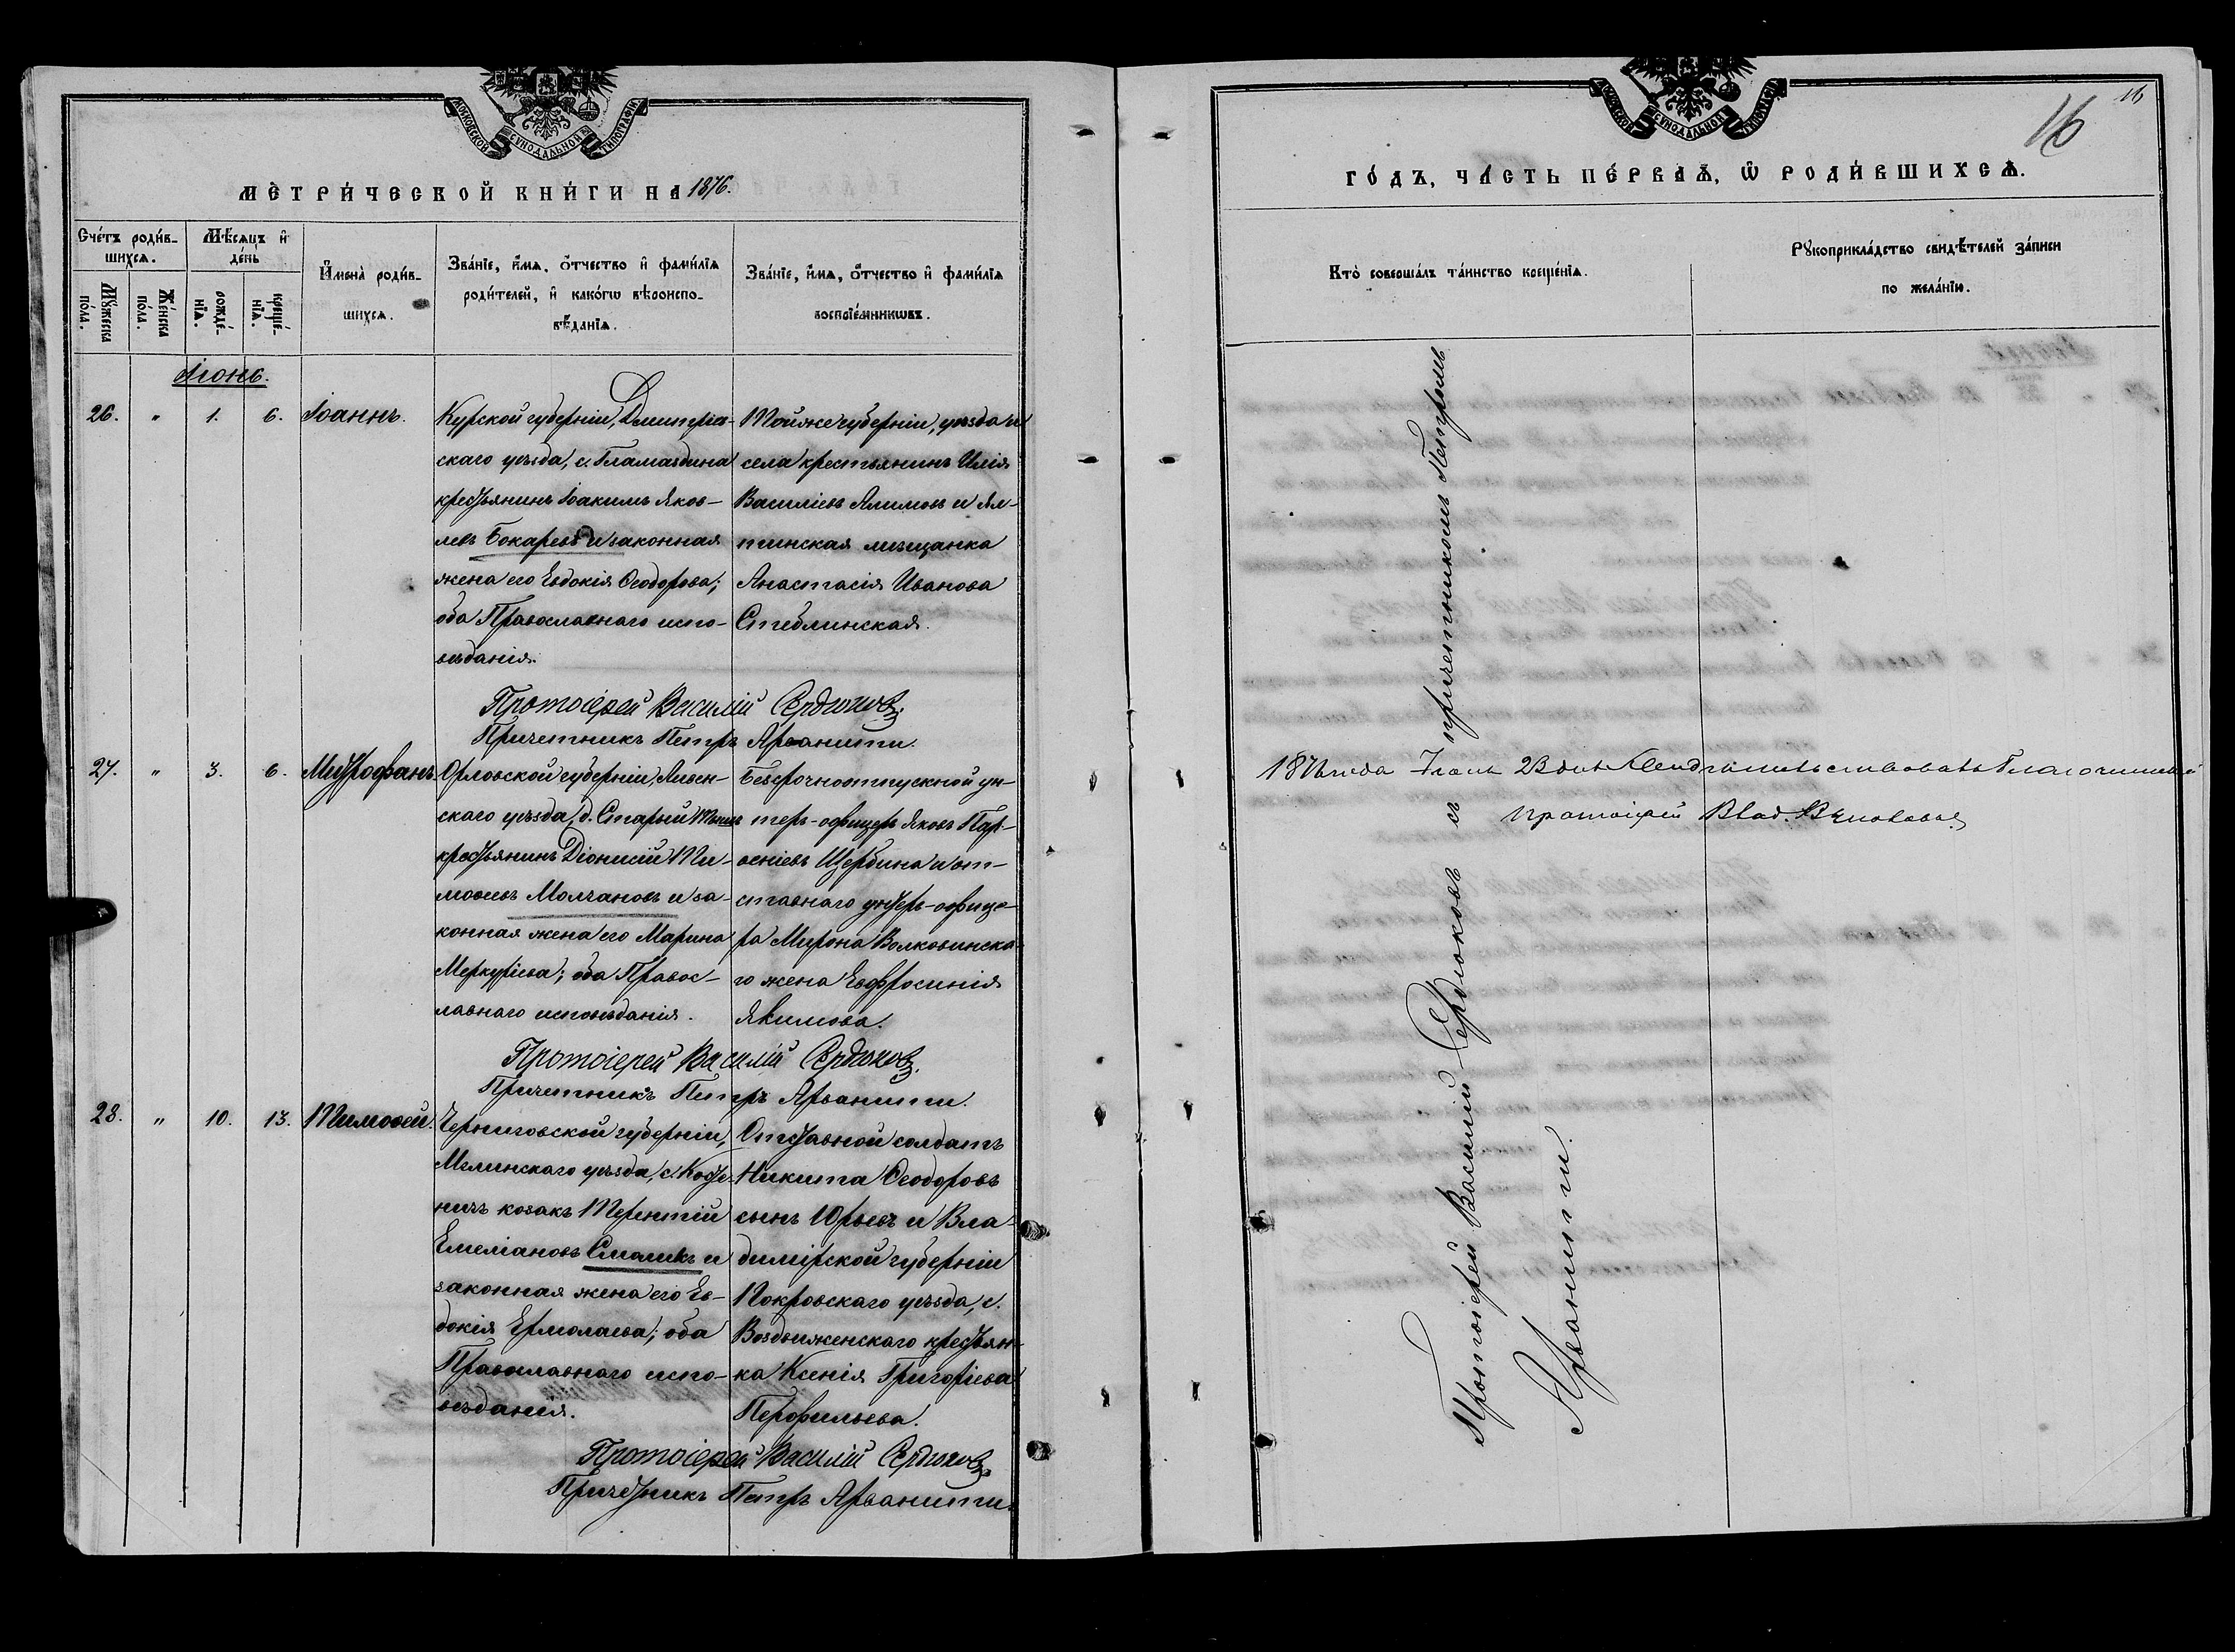 МОСКОВСКОЙ СѴНОДАЛЬНОЙ ТИПОГРАФІИ
МЕТРИ́ЧЕСКОЙ КНИ́ГИ НА 1876.
Сче́тъ роди́в-
шихся.
Мѣ́сяцъ и҆
де́нь
Мꙋ́жеска
по́ла.
Же́нска
по́ла.
рожде́-
нїѧ.
креще́-
нїѧ.
И҆мена̀ роди́в-
шихсѧ.
Зва́нїе, и҆́мѧ, ѻ҆́тчество и҆ фами́лїѧ
роди́телей, и҆ како́гѡ вѣроиспо-
вѣ́данїѧ.
Зва́нїе, и҆́мѧ, ѻ҆́тчество и҆ фами́лїѧ
воспрїе́мникѡвъ.
Іюнь.
26. " 1. 6. Іоаннъ.
Курской губерніи, Дмитріев-
скаго уѣзда, с. Гламаздина
крестьянинъ Іоакимъ Яков-
левъ Бокаревъ и законная
жена его Евдокія Ѳеодорова;
оба Православнаго испо-
вѣданія.
Той же губерніи, уѣзда и
села крестьянинъ Илія
Василіевъ Алимовъ и Ял-
тинская мѣщанка
Анастасія Иванова
Стеблинская.
Протоіерей Василій Сердюковъ.
Причетникъ Петръ Арванити.
27. " 3. 6. Митрофанъ.
Орловской губерніи, Ливен-
скаго уѣзда, д. Старый
крестьянинъ Діонисій Ти-
моѳеевъ Молчановъ и за-
конная жена его Марина
Меркуріева; оба Правос-
лавнаго исповѣданія.
Безсрочноотпускной ун-
теръ-офицеръ Яковъ Пар-
ѳеніевъ Щербина и от-
ставнаго унтеръ-офице-
ра Мирона Волковинска-
го жена Евфросинія
Якимова.
Протоіерей Василій Сердюковъ.
Причетникъ Петръ Арванити.
28. " 10. 13. Тимоѳей.
Черниговской губерніи,
Мглинскаго уѣзда, с. Косте-
ничъ козакъ Терентій
Емеліановъ Смоликъ и
законная жена его Ев-
докія Ермолаева; оба
Православнаго испо-
вѣданія.
Отставной солдатъ
Никита Ѳеодоровъ
сынъ Юрьевъ и Вла-
димірской губерніи
Покровскаго уѣзда, с.
Воздвиженскаго крестьян-
ка Ксенія Григоріева
Перфильева.
Протоіерей Василій Сердюковъ.
Причетникъ Петръ Арванити.
МОСКОВСКОЙ СѴНОДАЛЬНОЙ ТИПОГРАФІИ
16
16
ГО́ДЪ, ЧА́СТЬ ПЕ́РВАѦ, Ѡ҆ РОДИ́ВШИХСѦ.
Кто̀ соверша́лъ та́инство креще́нїѧ.
Рꙋкоприкла́дство свидѣ́телей за́писи
по жела́нїю.
Протоіерей Василій Сердюковъ съ причетникомъ Петромъ
Арванити.
1876 года Іюля 2 дня Свидѣтельствовалъ Благочинный
протоіерей Влад.